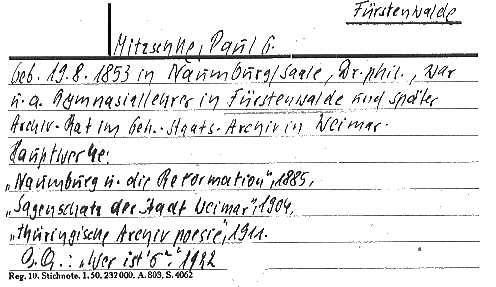 Fürstenwalde
Mitzschke, Paul G.
geb. 19.8.1853 in Naumburg/Saale, Dr. phil., war
u.a. Gymnasiallehrer in Fürstenwalde und später
Archiv-Rat im Geh. Staats-Archiv in Weimar.
Hauptwerke:
„Naumburg u. die Reformation", 1885,
„Sagenschatz der Stadt Weimar", 1904,
„Thüringische Archivpoesie", 1911.
„Wer ist's?" 1922
Reg. 10. Stichnote. I. 50. 232000. A. 803, S. 4062